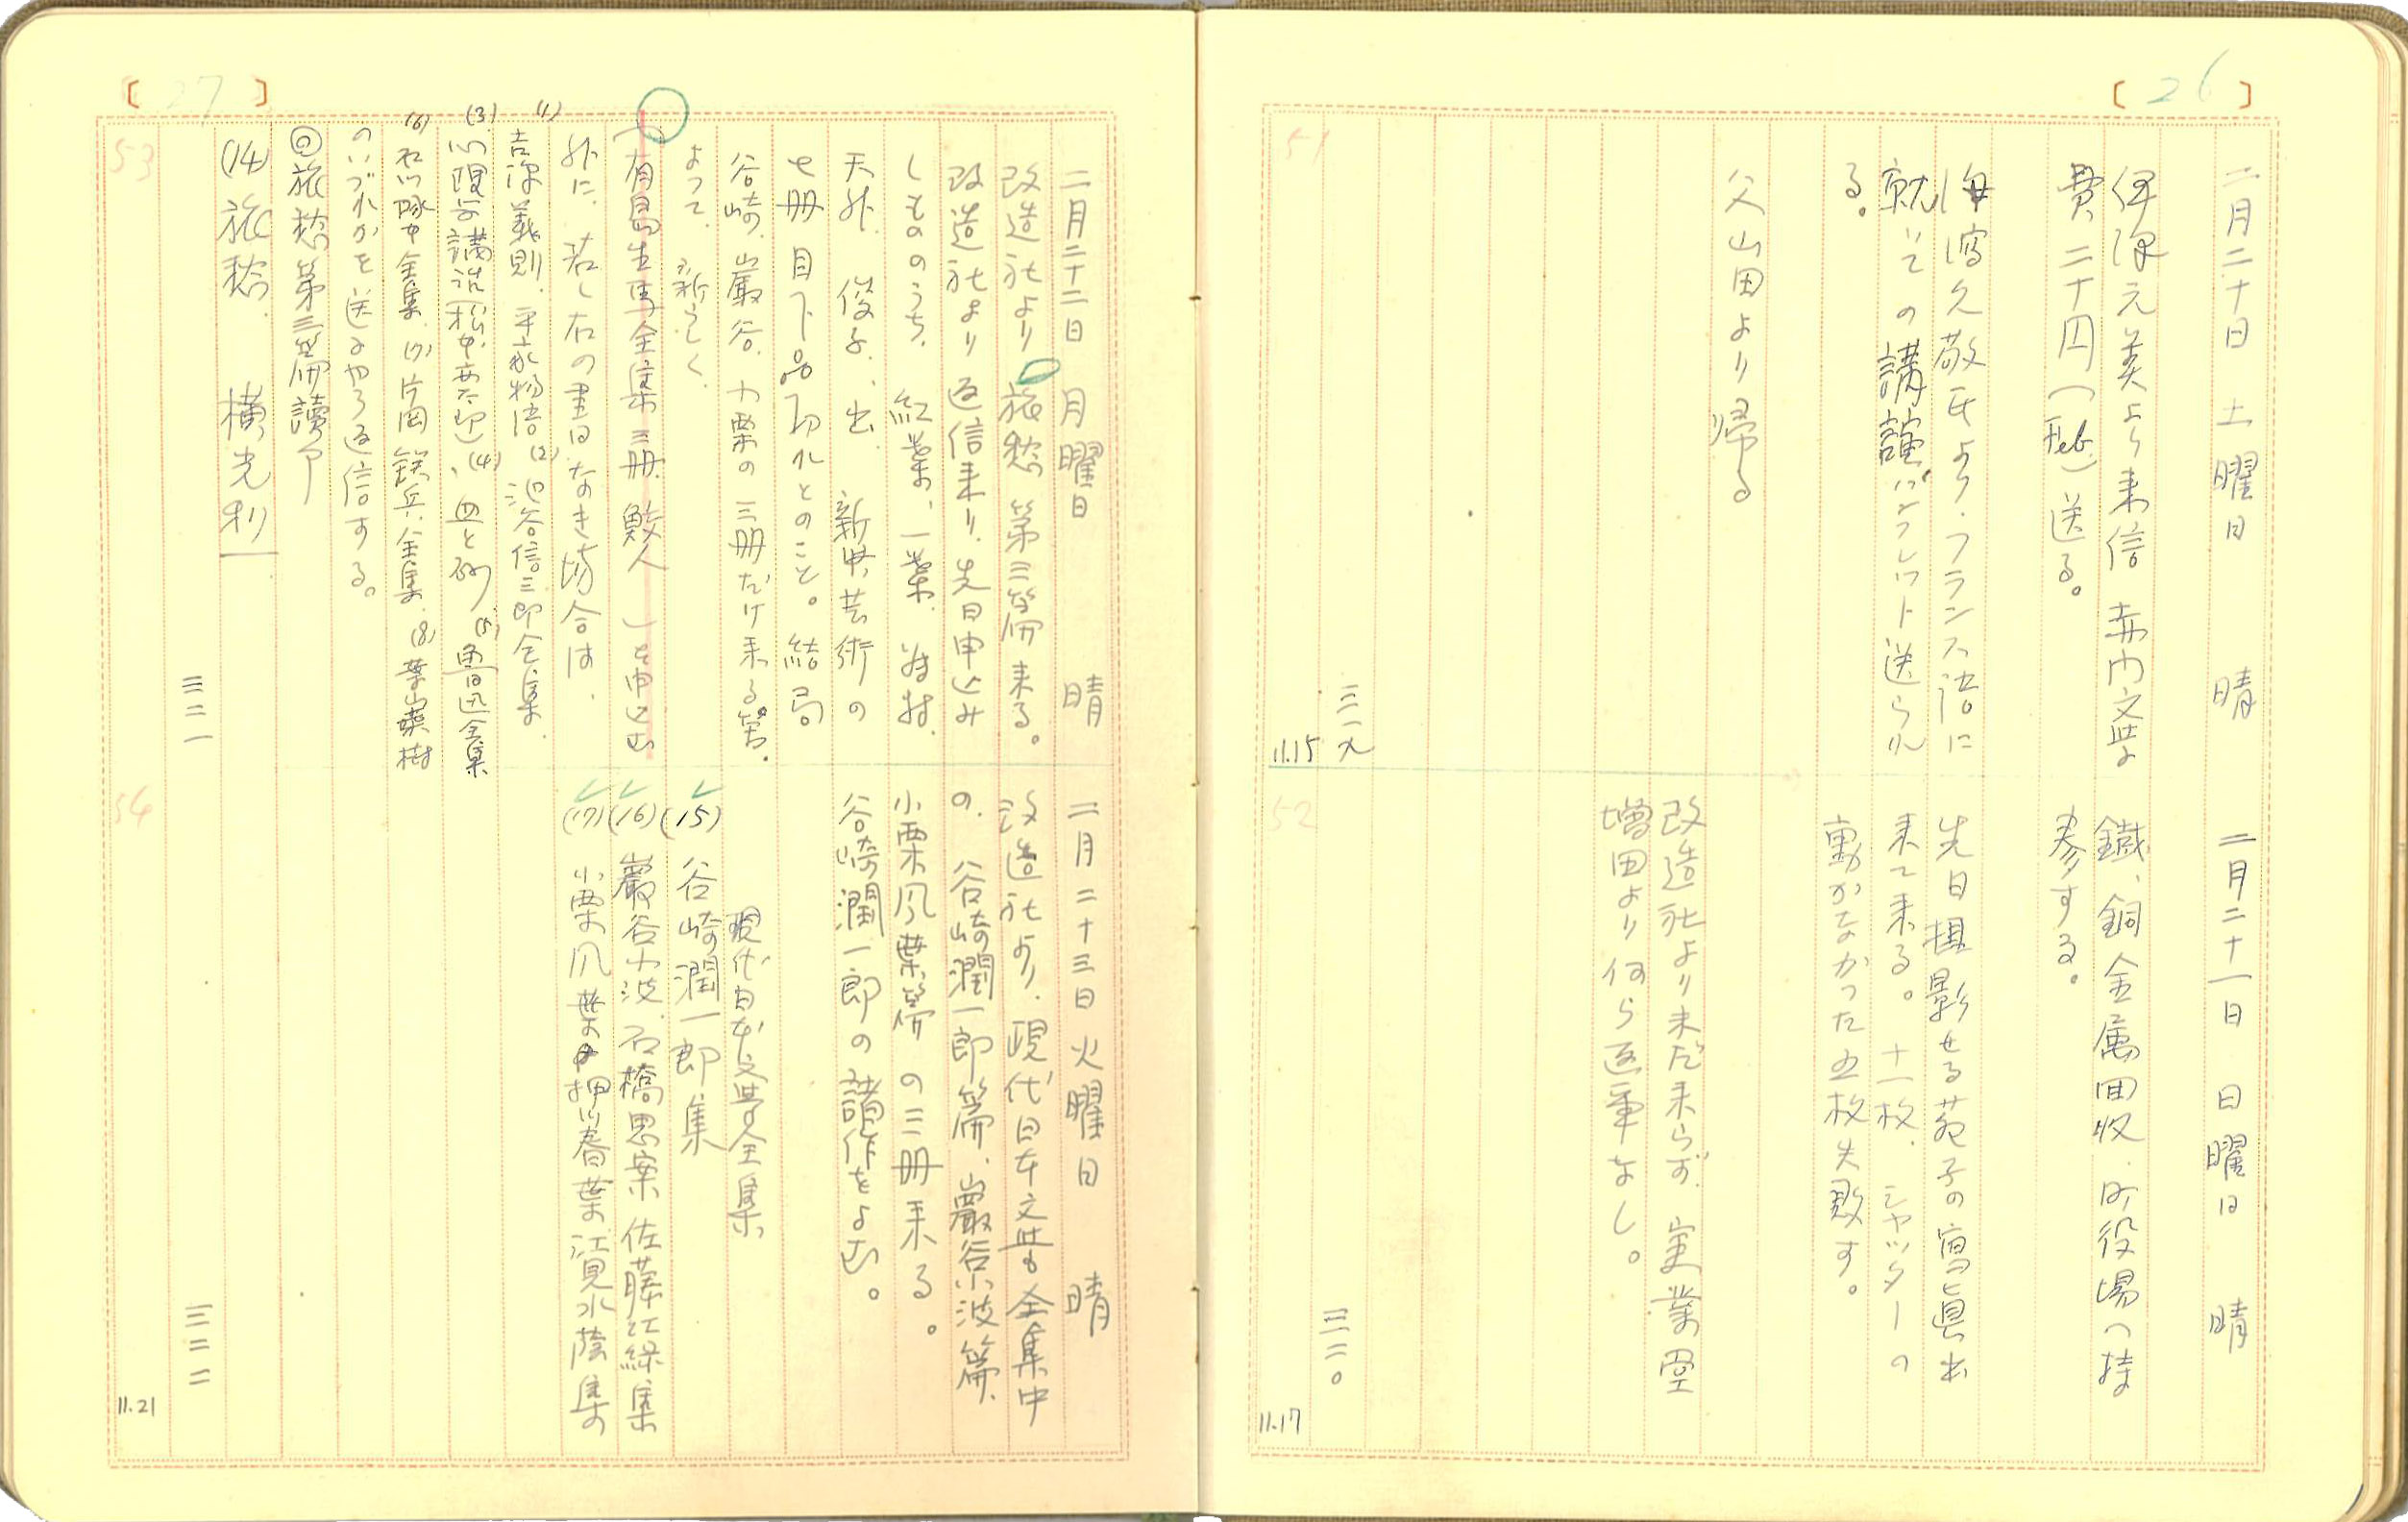 [26]
51
二月二十日 土曜日 晴
伊深元美より来信 赤門文学
費 二十円(Feb.)送る。
久敬氏より、フランス語に
就いての講議パンフレット送られ
る。
父山田より帰る
三一九
11.15
52
二月二十一日 日曜日 晴
鐵、銅 金属回収、役場へ持
参する。
先日撮影せる苑子の寫眞出
来て来る。十一枚、シャッターの
動かなかった五枚失敗す。
改造社より未だ来らず、実業圏
増田より何ら返事なし。
三二〇
11.17
[27]
53
二月二十二日 月曜日 晴
改造社より旅愁 第三篇来る。
改造社より返信来り、先日申込み
しもののうち、紅葉、一葉、
天外、俊子、 新興芸術の
七冊目下品切れとのこと。結局
谷崎、巖谷、小栗の三冊だけ来る筈。
よって、新らしく、
(有島生馬全集三冊、鮫人 )を申込む
外に、若し右の書なき場合は、
(1)吉源義則、平家物語 (2)池谷信三郎全集、
(3)心理学講説(松本亦太郎)、(4)血と砂 (5)魯迅全集
(6) 全集、(7)片岡鉄兵全集、(8)葉山嘉樹
のいづれかを送るやう返信する。
◎旅愁第三篇讀了
(14)旅愁 横光利一
三二一
54
二月二十三日 火曜日 晴
改造社より、現代日本文学全集中
の、谷崎潤一郎篇、巖谷小波篇、
小栗風葉篇の三冊来る。
谷崎潤一郎の諸作をよむ。
現代日本文学全集
(15)谷崎潤一郎集
(16)巖谷小波 石橋思案 佐藤紅緑集
(17)小栗風葉 押川春葉 江見水蔭集
三二二
11.21